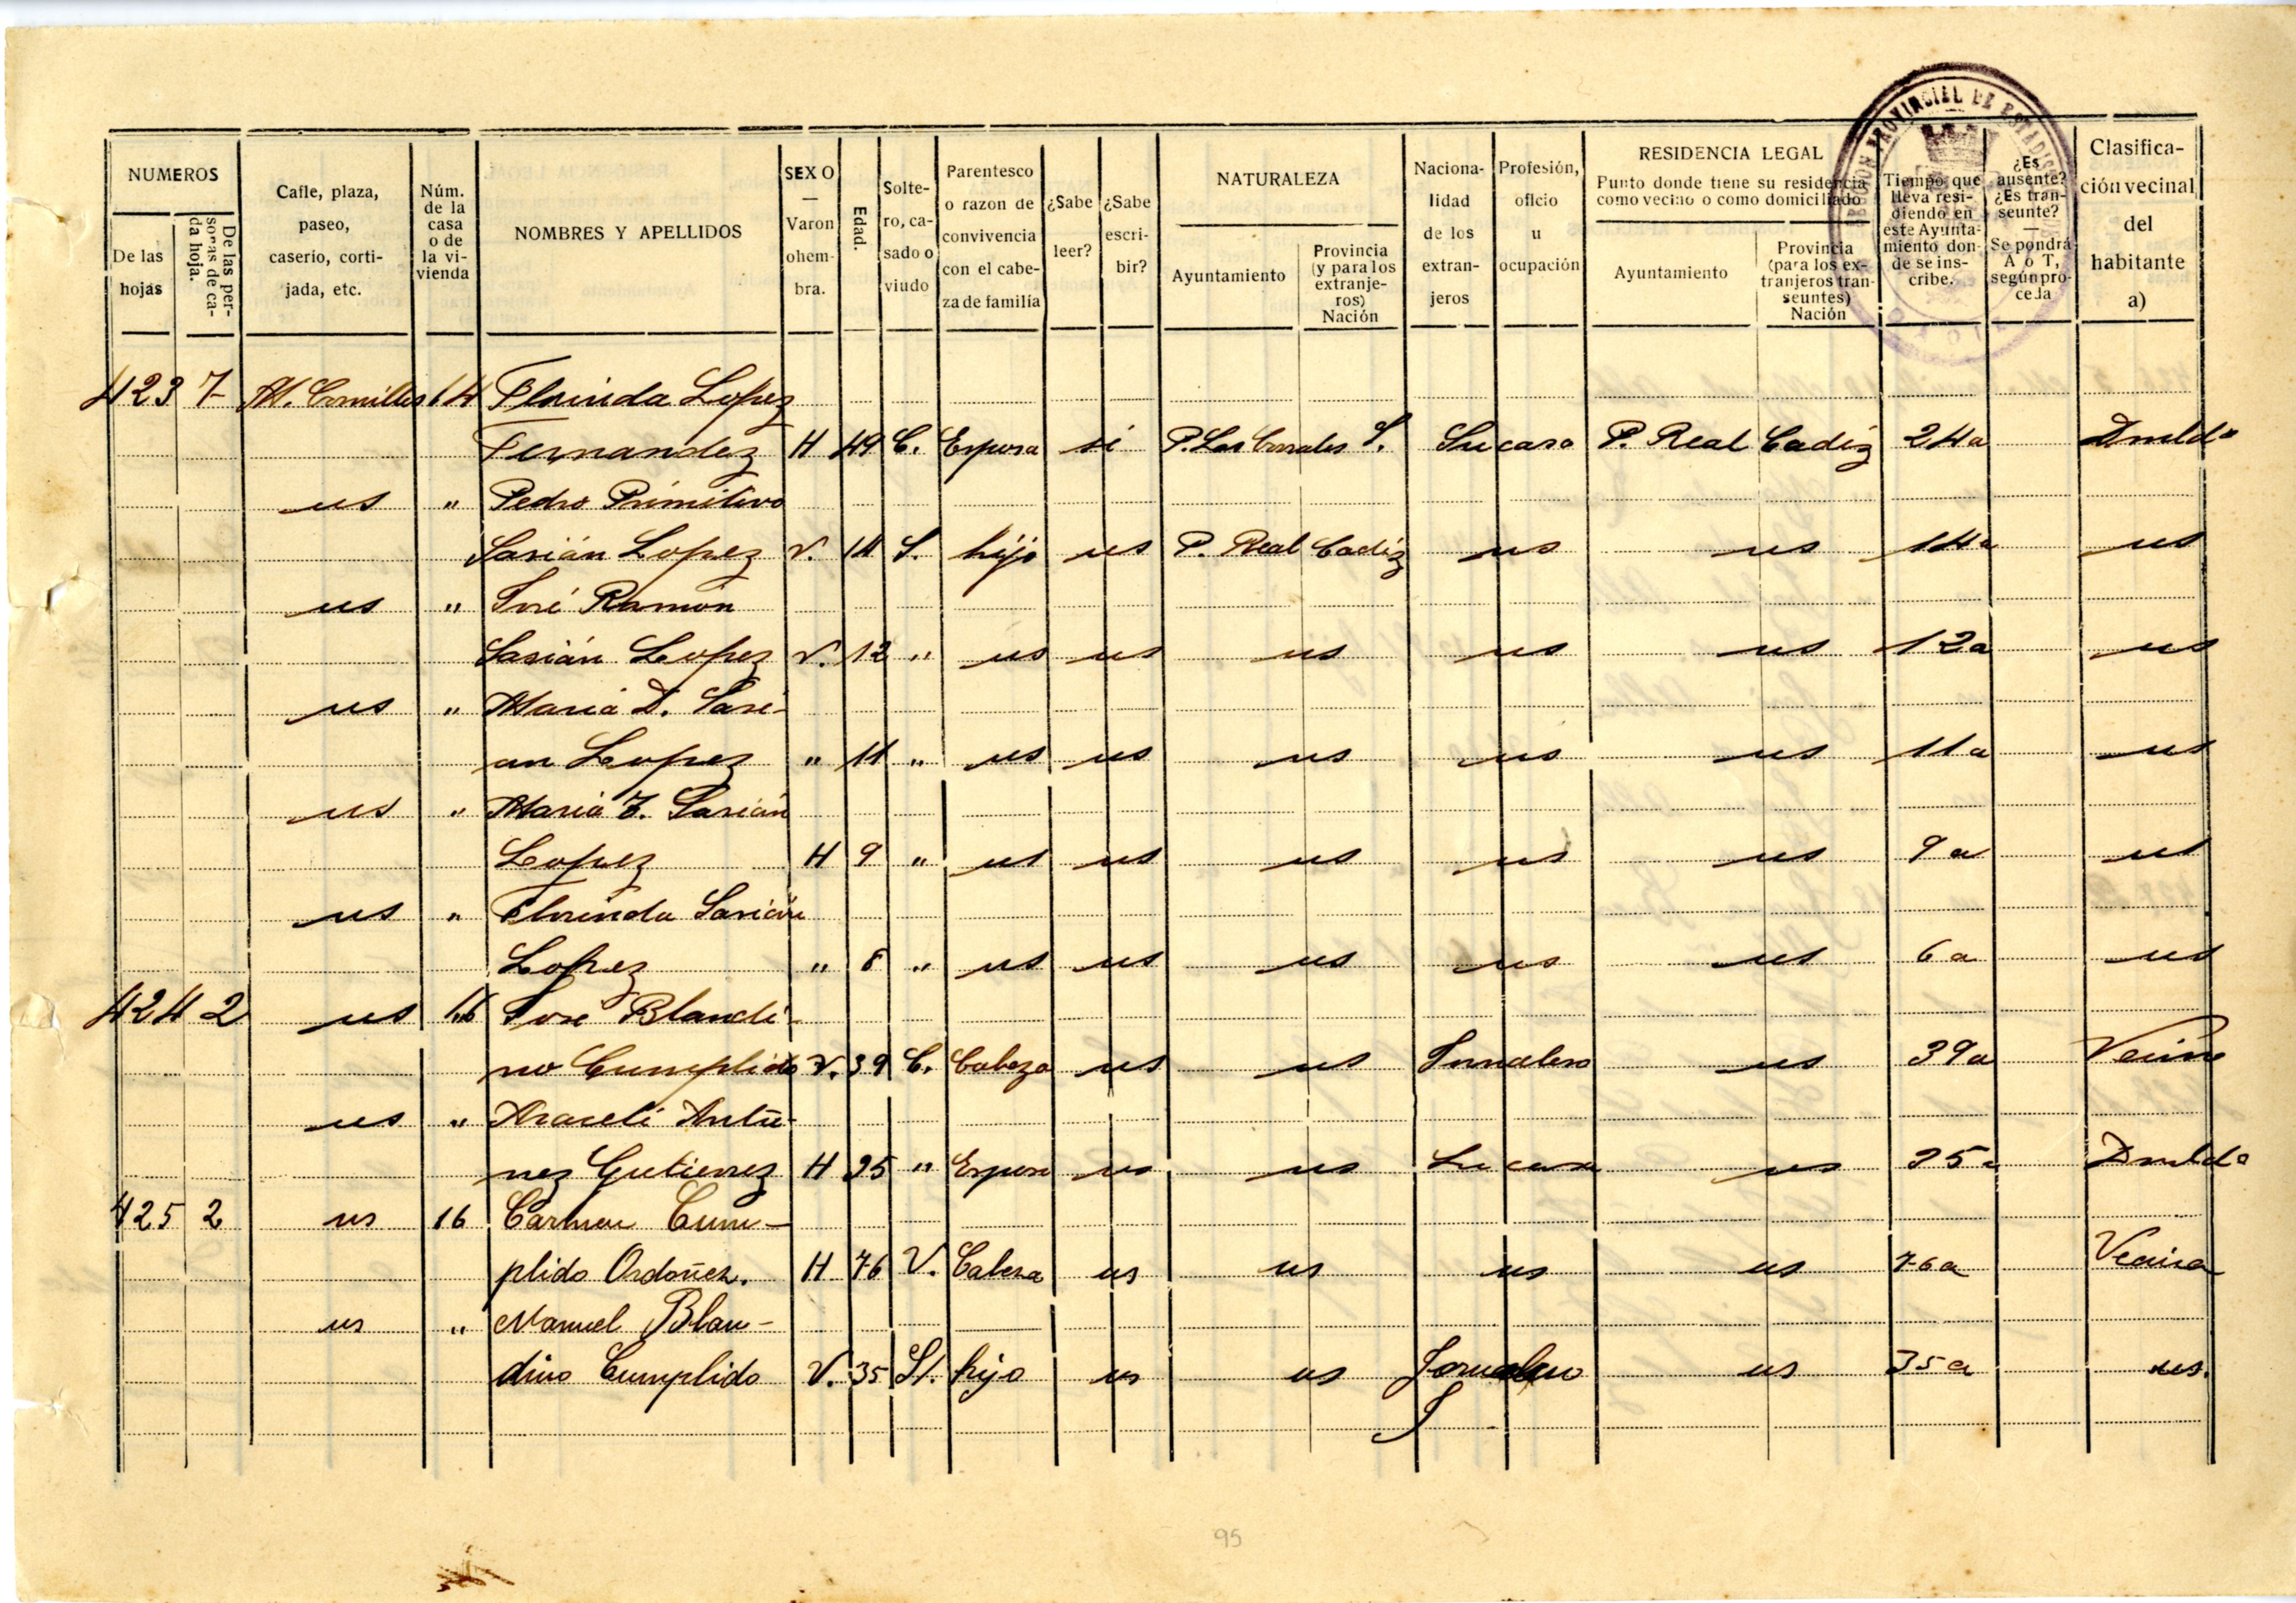 SECCION PROVINCIAL DE ESTADISTICA
CADIZ
NUMEROS
De las hojas
De las personas de cada hoja.
Calle, plaza, paseo, caserio, cortijada, etc.
Núm. de la casa o de la vivienda
NOMBRES Y APELLIDOS
SEXO — Varon ohembra.
Edad.
Soltero, casado o viudo
Parentesco o razon de convivencia con el cabeza de familia
¿Sabe leer?
¿Sabe escribir?
NATURALEZA
Ayuntamiento
Provincia (y para los extranjeros) Nación
Nacionalidad de los extranjeros
Profesión, oficio u ocupación
RESIDENCIA LEGAL
Punto donde tiene su residencia como vecino o como domiciliado
Ayuntamiento
Provincia (para los extranjeros transeuntes) Nación
Tiempo que lleva residiendo en este Ayuntamiento donde se inscribe.
¿Es ausente? ¿Es transeunte? — Se pondrá A o T, según proceda
Clasificación vecinal del habitante a)
423 7 M. Comillas 14 Florinda Lopez
Fernandez H 49 C. Esposa si P. Los Corrales S. Su casa P. Real Cadiz 24a Dmlda
us " Pedro Primitivo
Sarián Lopez V. 14 S. hijo us P. Real Cadiz us us 14a us
us " José Ramón
Sarián Lopez V. 12 " us us us us us 12a us
us " Maria D. Sari-
an Lopez " 11 " us us us us us 11a us
us " Maria F. Sarián
Lopez H 9 " us us us us us 9a us
us " Florinda Sarián
Lopez " 6 " us us us us us 6a us
424 2 us 16 José Blandi-
no Cumplido V. 39 C. Cabeza us us Jornalero us 39a Vecino
us " Araceli Antu-
nez Gutierrez H 25 " Esposa us us Su casa us 25a Dmlda
425 2 us 16 Carmen Cum-
plido Ordoñez. H 76 V. Cabeza us us us us 76a Vecina
us " Manuel Blan-
dino Cumplido V. 35 St. hijo us us Jornalero us 35a us.
95